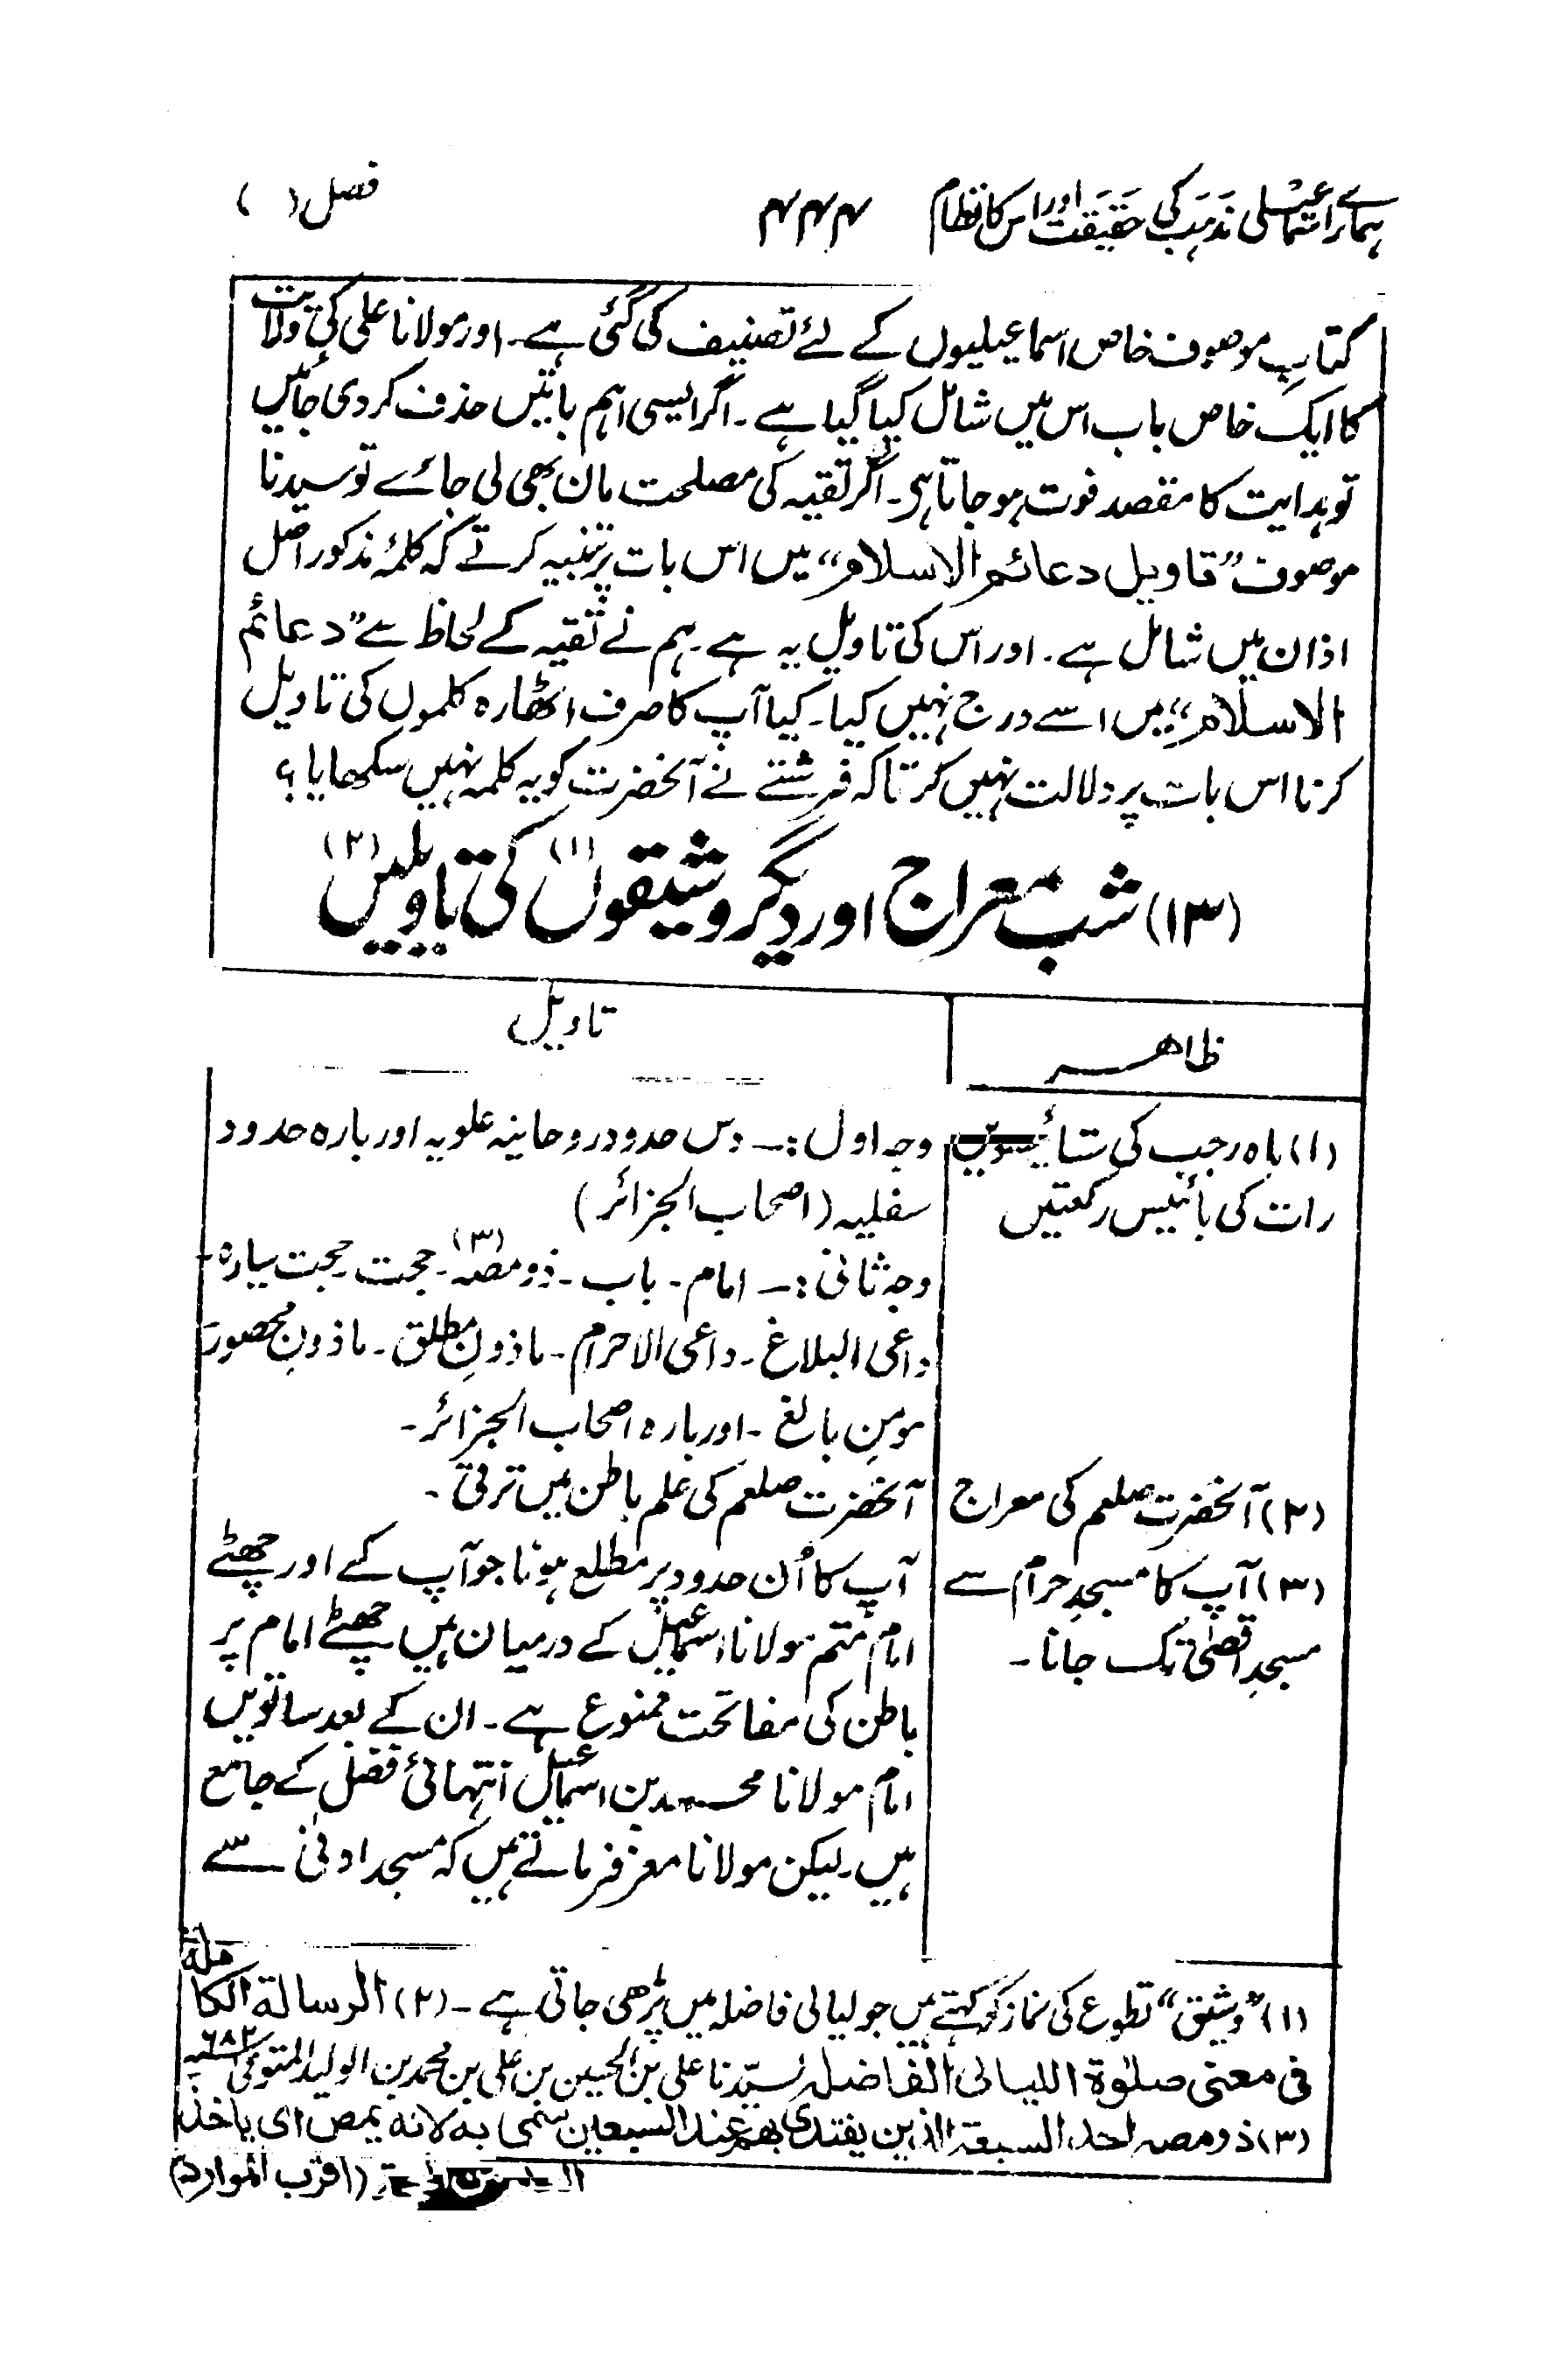 ہمارے اسماعیلی مذہب کی حقیقت اور اس کا نظام ۴۴۴ فصل ( )
کتابِ موصوف خاص اسماعیلیوں کے لئے تصنیف کی گئی ہے۔ اور مولانا علی کی ولایت
کا ایک خاص باب اس میں شامل کیا گیا ہے۔ اگر ایسی اہم باتیں حذف کر دی جائیں
تو ہدایت کا مقصد فوت ہو جاتا ہی۔ اگر تقیہ کی مصلحت مان بھی لی جائے تو سیدنا
موصوف ”تاویل دعائم الاسلام“ میں اس بات پر تنبیہ کرتے کہ کلمۂ مذکور اصل
اذان میں شامل ہے۔ اور اس کی تاویل یہ ہے۔ ہم نے تقیہ کے لحاظ سے ”دعائم
الاسلام“ میں اسے درج نہیں کیا۔ کیا آپ کا صرف اٹھارہ کلموں کی تاویل
کرنا اس بات پر دلالت نہیں کرتا کہ فرشتے نے آنحضرت کو یہ کلمہ نہیں سکھایا؟
(۱۳) شبِ معراج اور دیگر وشیقوں (۱) کی تاویلیں (۲)
ظاہر
تاویل
(۱) ماہ رجب کی ستائیسویں
رات کی بائیس رکعتیں
وجہ اول :۔ دس حدود روحانیہ علویہ اور بارہ حدود
سفلیہ (اصحاب الجزائر)
وجہ ثانی :۔ امام۔ باب۔ ذو مصہ (۳)۔ حجت۔ حجت سیارہ۔
داعی البلاغ۔ داعی الاحرام۔ ماذونِ مطلق۔ ماذونِ محصور۔
مومن بالغ۔ اور بارہ اصحاب الجزائر۔
(۲) آنحضرت صلعم کی معراج
آنحضرت صلعم کی علم باطن میں ترقی۔
(۳) آپ کا مسجدِ حرام سے
مسجدِ اقصیٰ تک جانا۔
آپ کا اُن حدود پر مطلع ہونا جو آپ کے اور چھٹے
امام متم مولانا اسماعیل کے درمیان ہیں چھٹے امام پر
باطن کی مفاتحت ممنوع ہے۔ ان کے بعد ساتویں
امام مولانا محمد بن اسماعیل انتہائی فضل کے جامع
ہیں۔ لیکن مولانا معز فرماتے ہیں کہ مسجد ادنیٰ سے
(۱) ”وشیق“ تطوع کی نماز کو کہتے ہیں جو لیالی فاضلہ میں پڑھی جاتی ہے۔ (۲) الرسالة الکاملة
فی معنی صلوٰة اللیالی الفاضلہ لسیّدنا علی بن الحسین بن علی بن محمد بن الولید المتوفی ۶۸۲ھ
(۳) ذو مصہ احد السبعة الذین یفتدی بهم عند السبعین سمی به لانه یمص ای یاخذ
(اقرب الموارد)